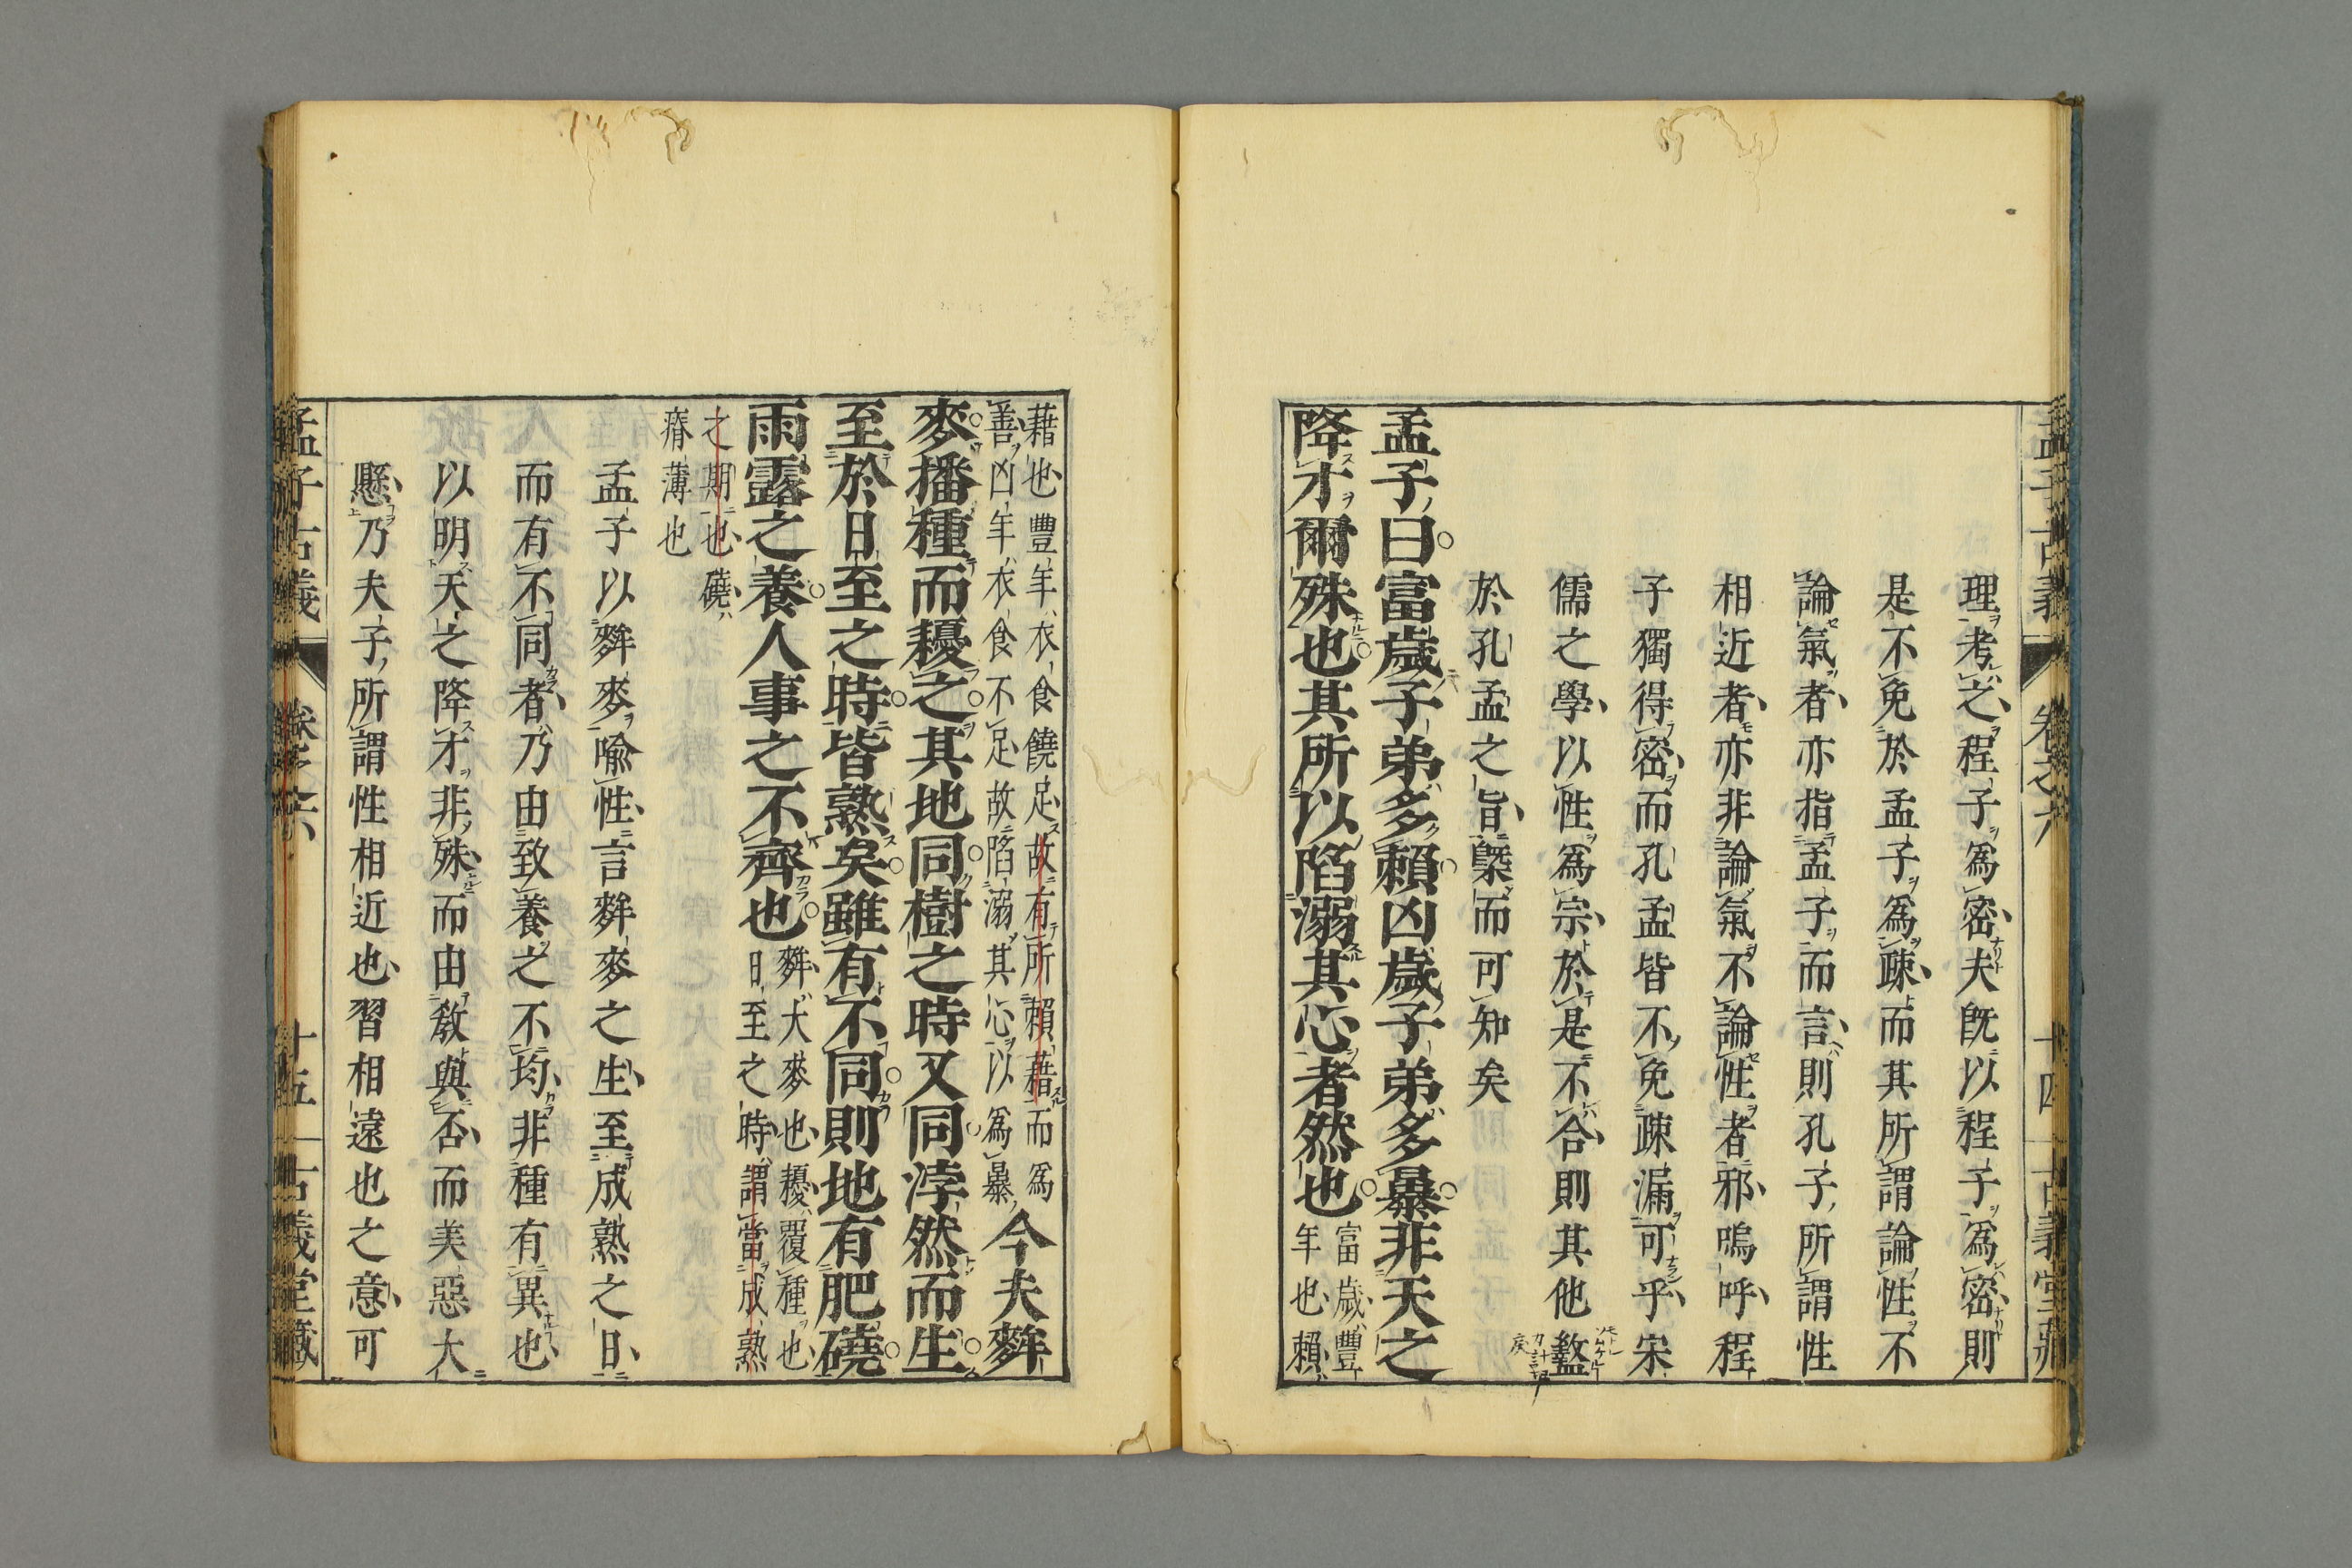 理考之程子爲密夫既以程子爲密則
是不免於孟子爲疎而其所謂論性不
論氣者亦指孟子而言則孔子所謂性
相近者亦非論氣不論性者邪嗚呼程
子獨得密而孔孟皆不免疎漏可乎宋
儒之學以性爲宗於是不合則其他盭
於孔孟之旨槩而可知矣
孟子曰富歲子弟多賴凶歲子弟多暴非天之
降才爾殊也其所以陷溺其心者然也
富歲豐
年也賴
孟子古義 卷之六 十四 古義堂藏
藉也豐年衣食饒足故有所賴藉而爲
善凶年衣食不足故陷溺其心以爲暴
今夫麰
麥播種而耰之其地同樹之時又同浡然而生
至於日至之時皆熟矣雖有不同則地有肥磽
雨露之養人事之不齊也
麰大麥也耰覆種也
日至之時謂當成熟
之期也磽
瘠薄也
孟子以麰麥喩性言麰麥之生至成熟之日
而有不同者乃由致養之不均非種有異也
以明天之降才非殊而由敎與否而美惡大
懸乃夫子所謂性相近也習相遠也之意可
孟子古義 卷之六 十五 古義堂藏